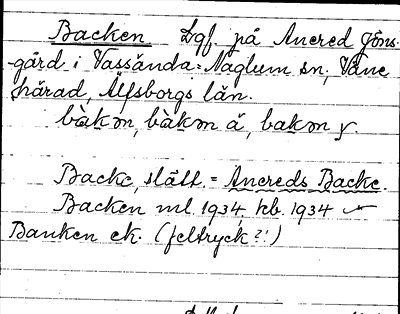 Backen Lgf. på Ancred Jöns-
gård i Vassända-Naglum sn, Väne
härad, Älfsborgs län.
bàkɔn, bàkɔn å, bakɔn y.
Backe, slätt. = Ancreds Backe.
Backen ml. 1934, hb. 1934
Banken ek. (feltryck?!)